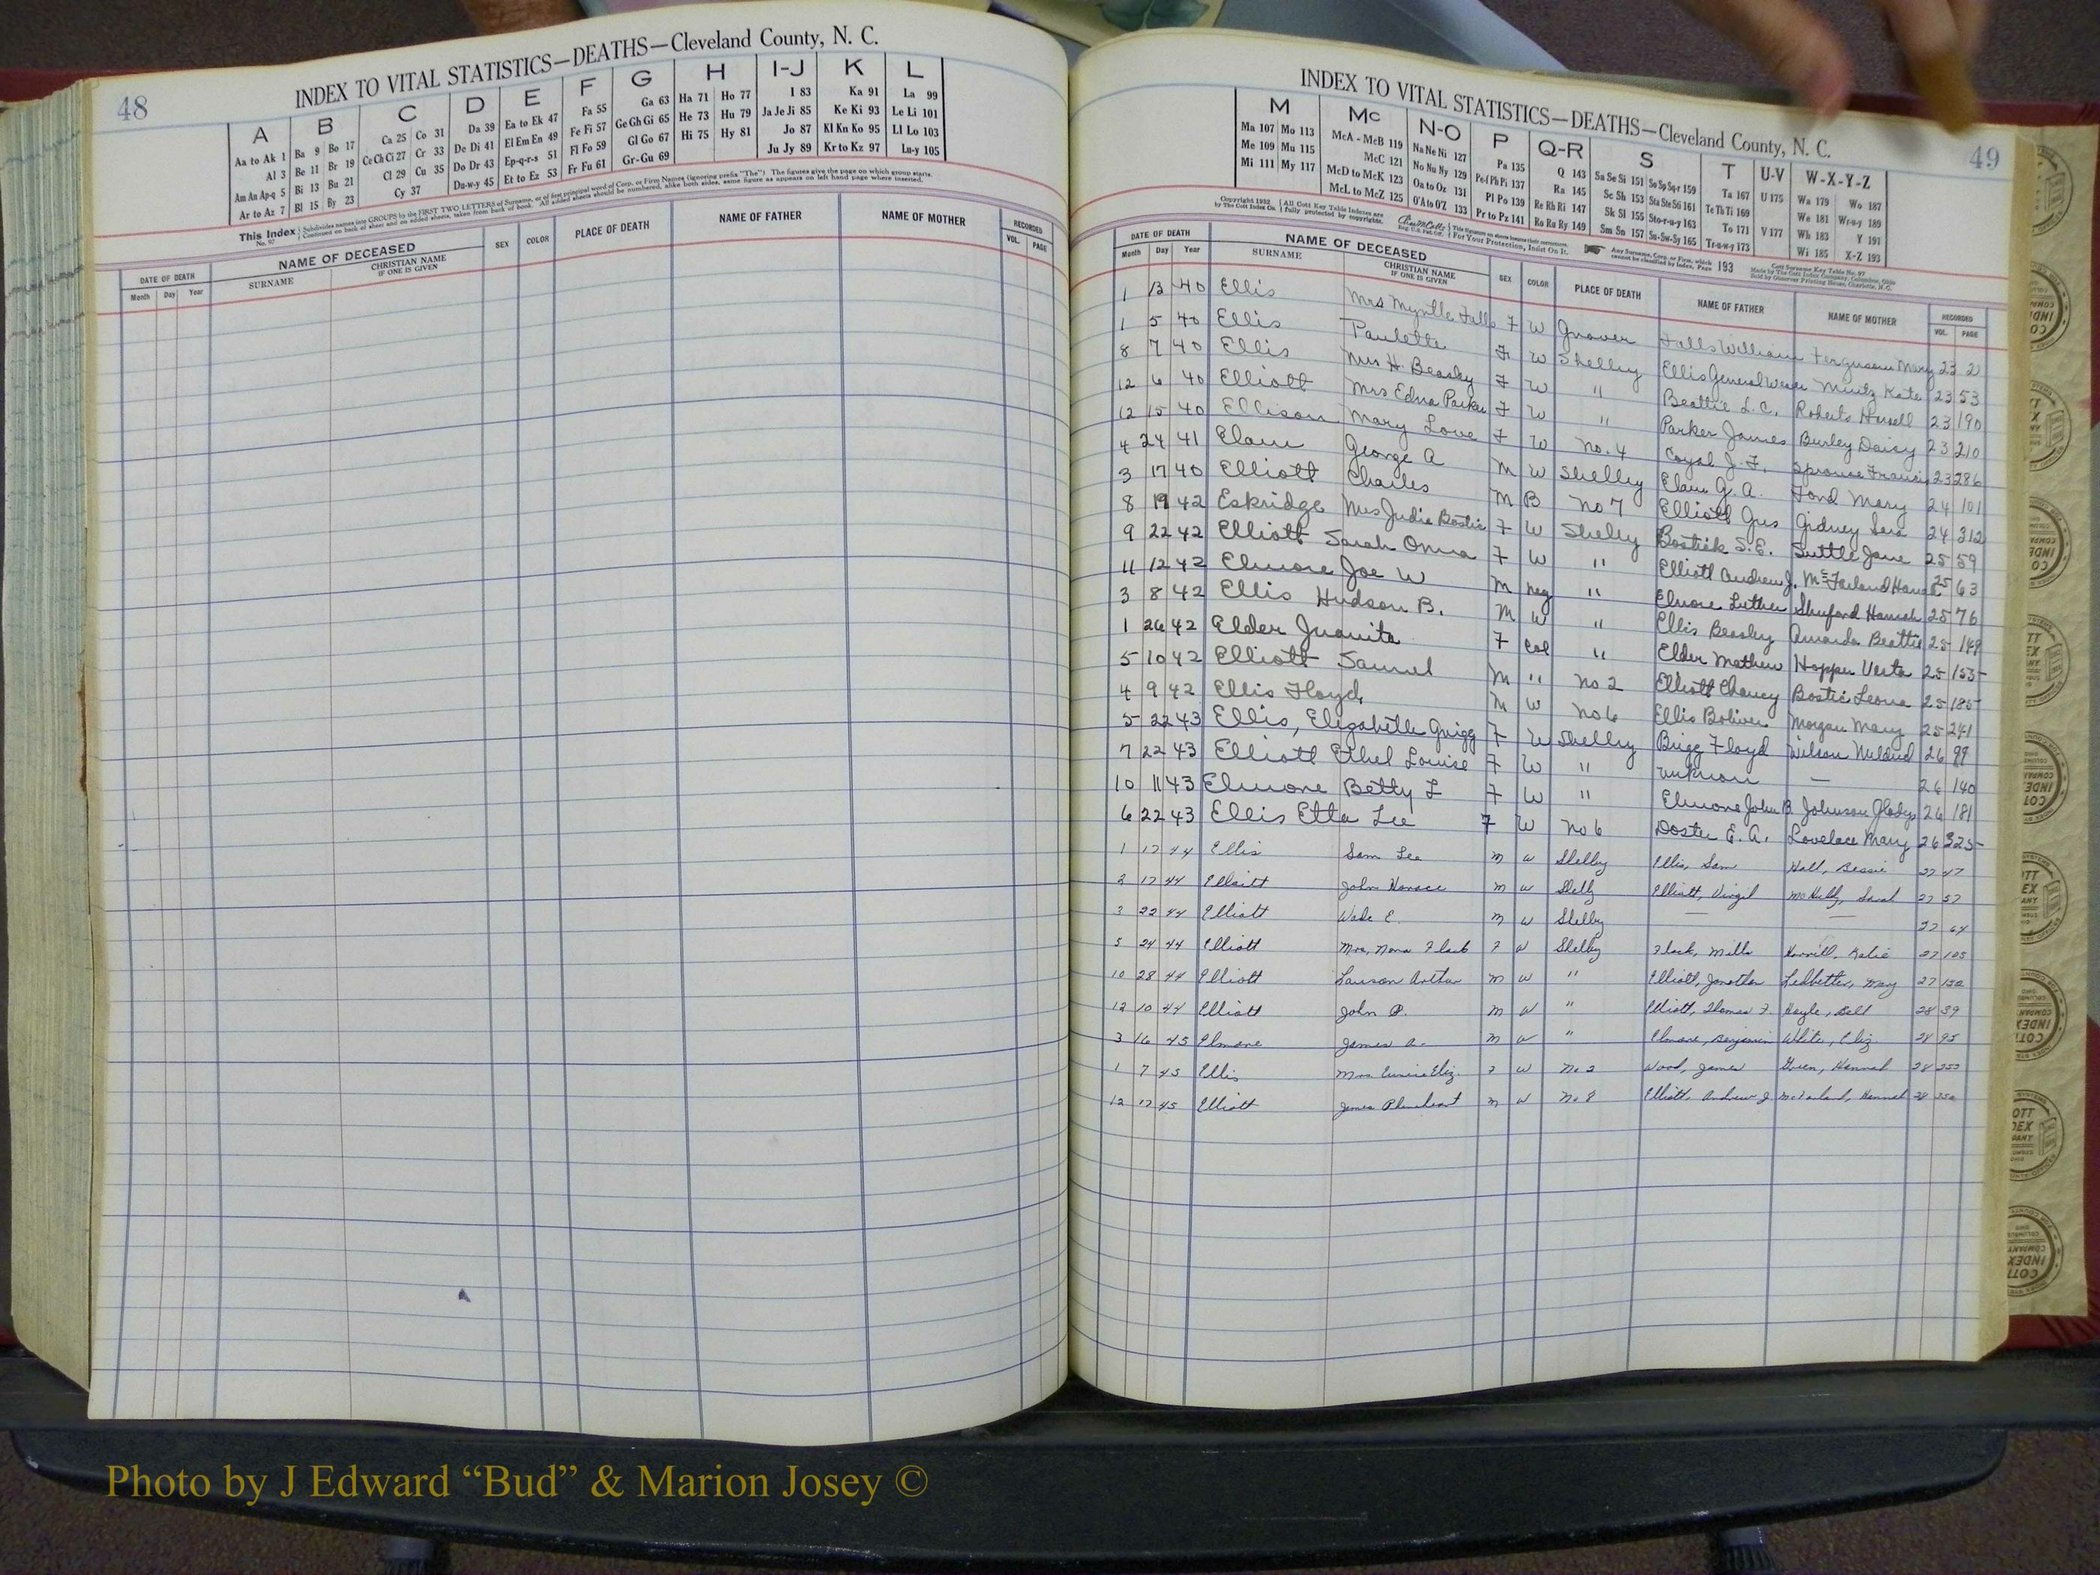 48
INDEX TO VITAL STATISTICS—DEATHS—Cleveland County, N. C.
A B C D E F G H I-J K L
Aa to Ak 1 Ba 9 Bo 17 Ca 25 Co 31 Da 39 Ea to Ek 47 Fa 55 Ga 63 Ha 71 Ho 77 I 83 Ka 91 La 99
Al 3 Be 11 Br 19 Ce Ch Ci 27 Cr 33 De Di 41 El Em En 49 Fe Fi 57 Ge Gh Gi 65 He 73 Hu 79 Ja Je Ji 85 Ke Ki 93 Le Li 101
Am An Ap-q 5 Bi 13 Bu 21 Cl 29 Cu 35 Do Dr 43 Ep-q-r-s 51 Fl Fo 59 Gl Go 67 Hi 75 Hy 81 Jo 87 Kl Kn Ko 95 Ll Lo 103
Ar to Az 7 Bl 15 By 23 Cy 37 Du-w-y 45 Et to Ez 53 Fr Fu 61 Gr-Gu 69 Ju Jy 89 Kr to Kz 97 Lu-y 105
This Index No. 97 Subdivides names into GROUPS by the FIRST TWO LETTERS of Surname, or of first principal word of Corp. or Firm Names (ignoring prefix "The") The figures give the page on which group starts.
Continued on back of sheet and on added sheets, taken from back of book. All added sheets should be numbered, alike both sides, same figure as appears on left hand page where inserted.
DATE OF DEATH NAME OF DECEASED SEX COLOR PLACE OF DEATH NAME OF FATHER NAME OF MOTHER RECORDED
Month Day Year SURNAME CHRISTIAN NAME IF ONE IS GIVEN VOL. PAGE
INDEX TO VITAL STATISTICS—DEATHS—Cleveland County, N. C.
49
M Mc N-O P Q-R S T U-V W-X-Y-Z
Ma 107 Mo 113 McA - McB 119 Na Ne Ni 127 Pa 135 Q 143 Sa Se Si 151 So Sp Sq-r 159 Ta 167 U 175 Wa 179 Wo 187
Me 109 Mu 115 McC 121 No Nu Ny 129 Pe-f Ph Pi 137 Ra 145 Sc Sh 153 Sta Ste Sti 161 Te Th Ti 169 We 181 Wr-u-y 189
Mi 111 My 117 McD to McK 123 Oa to Oz 131 Pl Po 139 Re Rh Ri 147 Sk Sl 155 Sto-r-u-y 163 To 171 V 177 Wh 183 Y 191
McL to McZ 125 O'A to O'Z 133 Pr to Pz 141 Ro Ru Ry 149 Sm Sn 157 Su-Sw-Sy 165 Tr-u-w-y 173 Wi 185 X-Z 193
Copyright 1932 by The Cott Index Co. All Cott Key Table Indexes are fully protected by copyrights. For Your Protection, Insist On It. Any Surname, Corp. or Firm, which cannot be classified by Index, Page 193
Cott Surname Key Table No. 97 Made by The Cott Index Company, Columbus, Ohio Sold by Observer Printing House, Charlotte, N.C.
DATE OF DEATH NAME OF DECEASED SEX COLOR PLACE OF DEATH NAME OF FATHER NAME OF MOTHER RECORDED
Month Day Year SURNAME CHRISTIAN NAME IF ONE IS GIVEN VOL. PAGE
1 13 40 Ellis Mrs Myrtle Falls F W Grover Falls William Ferguson Mary 23 2
1 5 40 Ellis Paulette F W Shelby Ellis General Weaver Mintz Kate 23 53
8 7 40 Ellis Mrs H. Beasley F W " Beattie L. C. Roberts 23 190
12 6 40 Elliott Mrs Edna Parker F W " Parker James Burley Daisy 23 210
12 15 40 Ellison Mary Love F W No. 4 Coyal J. F. Sprouse 23 286
4 24 41 Elam George A M W Shelby Elam G. A. Ford Mary 24 101
3 17 40 Elliott Charles M B No 7 Elliott Gus Gidney Sera 24 312
8 19 42 Eskridge Mrs Judie Bostic F W Shelby Bostick S. E. Suttle Jane 25 59
9 22 42 Elliott Sarah Onna F W " Elliott Andrew J. McFarland Hannah 25 63
11 12 42 Elmore Joe W M neg " Elmore Luther Shuford Hannah 25 76
3 8 42 Ellis Hudson B. M W " Ellis Beasley Amanda Beattie 25 149
1 26 42 Elder Juanita F Col " Elder Mathew Hopper Verta 25 153
5 10 42 Elliott Samuel M " No 2 Elliott Chancy Bostic Leona 25 185
4 9 42 Ellis Floyd M W No 6 Ellis Boliver Morgan Mary 25 241
5 22 43 Ellis, Elizabeth Grigg F W Shelby Grigg Floyd Wilson Mildred 26 99
7 22 43 Elliott Ethel Louise F W " unknown — 26 140
10 11 43 Elmore Betty L F W " Elmore John B Johnson Gladys 26 181
6 22 43 Ellis Etta Lee F W No 6 Doster E. A. Lovelace Mary 26 325
1 17 44 Ellis Sam Lee M W Shelby Ellis, Sam Hall, Bessie 27 47
2 17 44 Elliott John Horace M W Shelby Elliott, Virgil Sarah 27 57
3 22 44 Elliott Wade E. M W Shelby — — 27 64
5 24 44 Elliott Mrs. Nora Flack F W Shelby Flack, Mills Harrill, Katie 27 105
10 28 44 Elliott Lawson Arthur M W " Elliott, Jonathan Ledbetter, Mary 27 150
12 10 44 Elliott John P. M W " Elliott, Thomas F. Hoyle, Bell 28 39
3 16 45 Elmore James A. M W " Elmore, Benjamin White, Eliz 28 95
1 7 45 Ellis Mrs. Eliz. F W No 2 Wood, James Green, Hannah 28
12 17 45 Elliott James Rhinehart M W No 8 Elliott, Andrew J McFarland, Hannah 28
Photo by J Edward “Bud” & Marion Josey ©